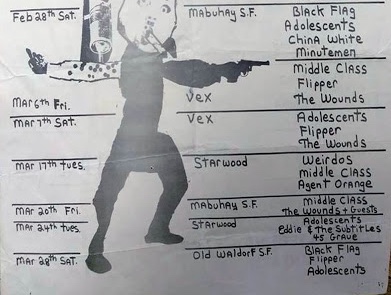 Feb 28th Sat. Mabuhay S.F. Black Flag
Adolescents
China White
Minutemen
Middle Class
Flipper
Mar 6th Fri. Vex The Wounds
Mar 7th Sat. Vex Adolescents
Flipper
The Wounds
Mar 17th tues. Starwood Weirdos
Middle Class
Agent Orange
Mar 20th Fri. Mabuhay S.F. Middle Class
The Wounds + Guests
Mar 24th tues. Starwood Adolescents
Eddie & the Subtitles
45 Grave
Mar 28th Sat. Old Waldorf S.F. Black Flag
Flipper
Adolescents